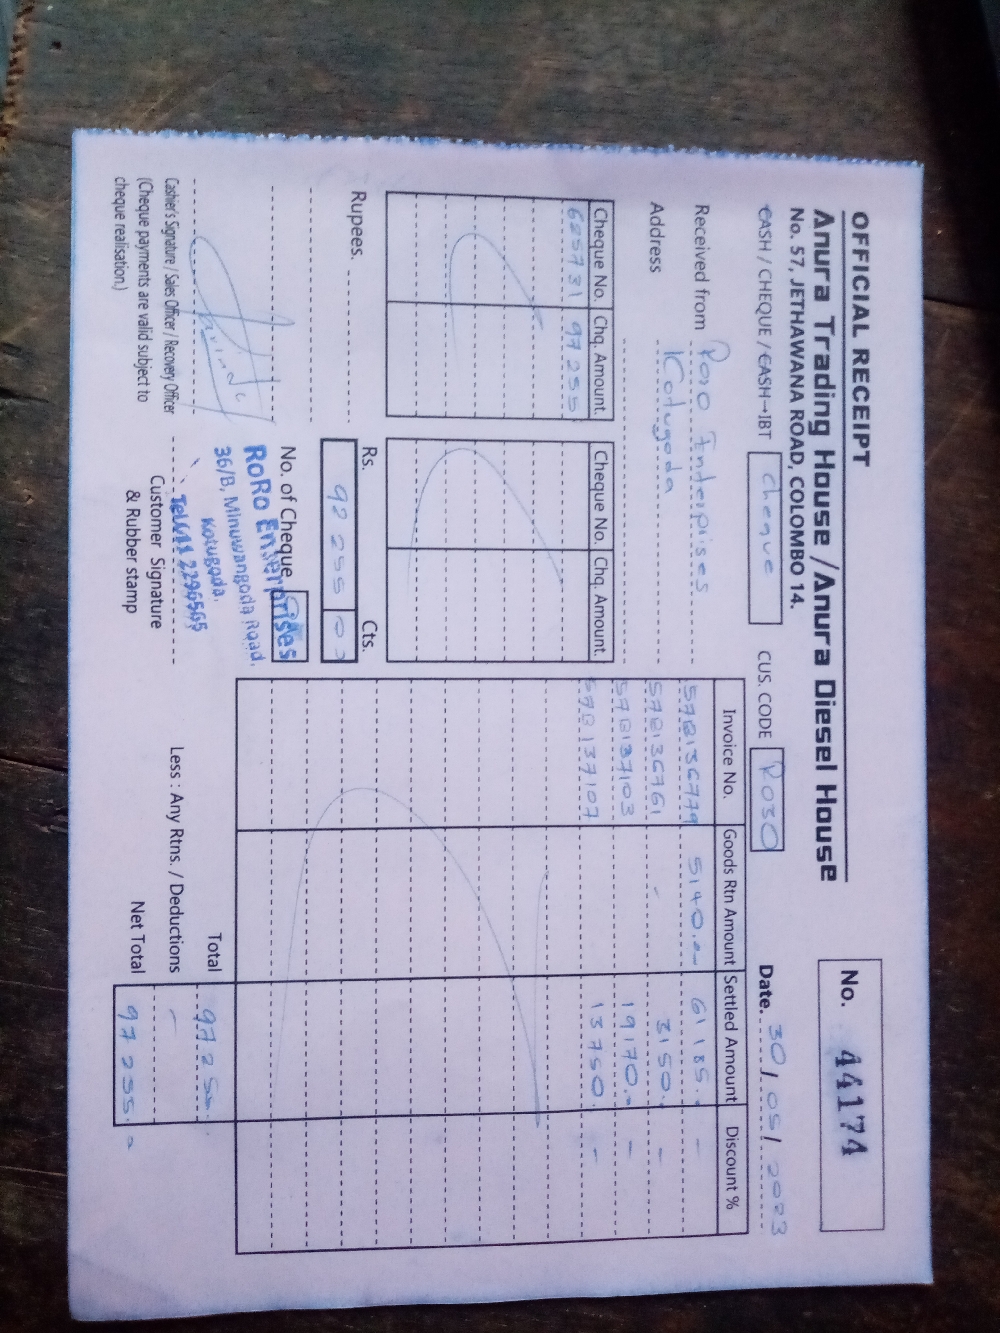 OFFICIAL RECEIPT
Anura Trading House / Anura Diesel House
No. 57, JETHAWANA ROAD, COLOMBO 14.
No. 44174
CASH / CHEQUE / CASH→IBT Cheque
CUS. CODE R030
Date. 30/05/2023
Received from Roro Enterprises
Address Kotugoda
Cheque No. Chq. Amount.
6257 31 97 255
Cheque No. Chq. Amount.
Rupees.
Rs. Cts.
No. of Cheque
Invoice No. Goods Rtn Amount Settled Amount Discount %
57B136779 5140.- 61185. -
57B136761 - 3150. -
57B137103 19170. -
57B137107 13750. -
RoRo Enterprises
36/B, Minuwangoda Road,
Kotugoda.
Tel:011 2296565
Cashier's Signature / Sales Officer / Recovery Officer
(Cheque payments are valid subject to
cheque realisation.)
Customer Signature
& Rubber stamp
Total 97255.
Less : Any Rtns. / Deductions -
Net Total 97255.-